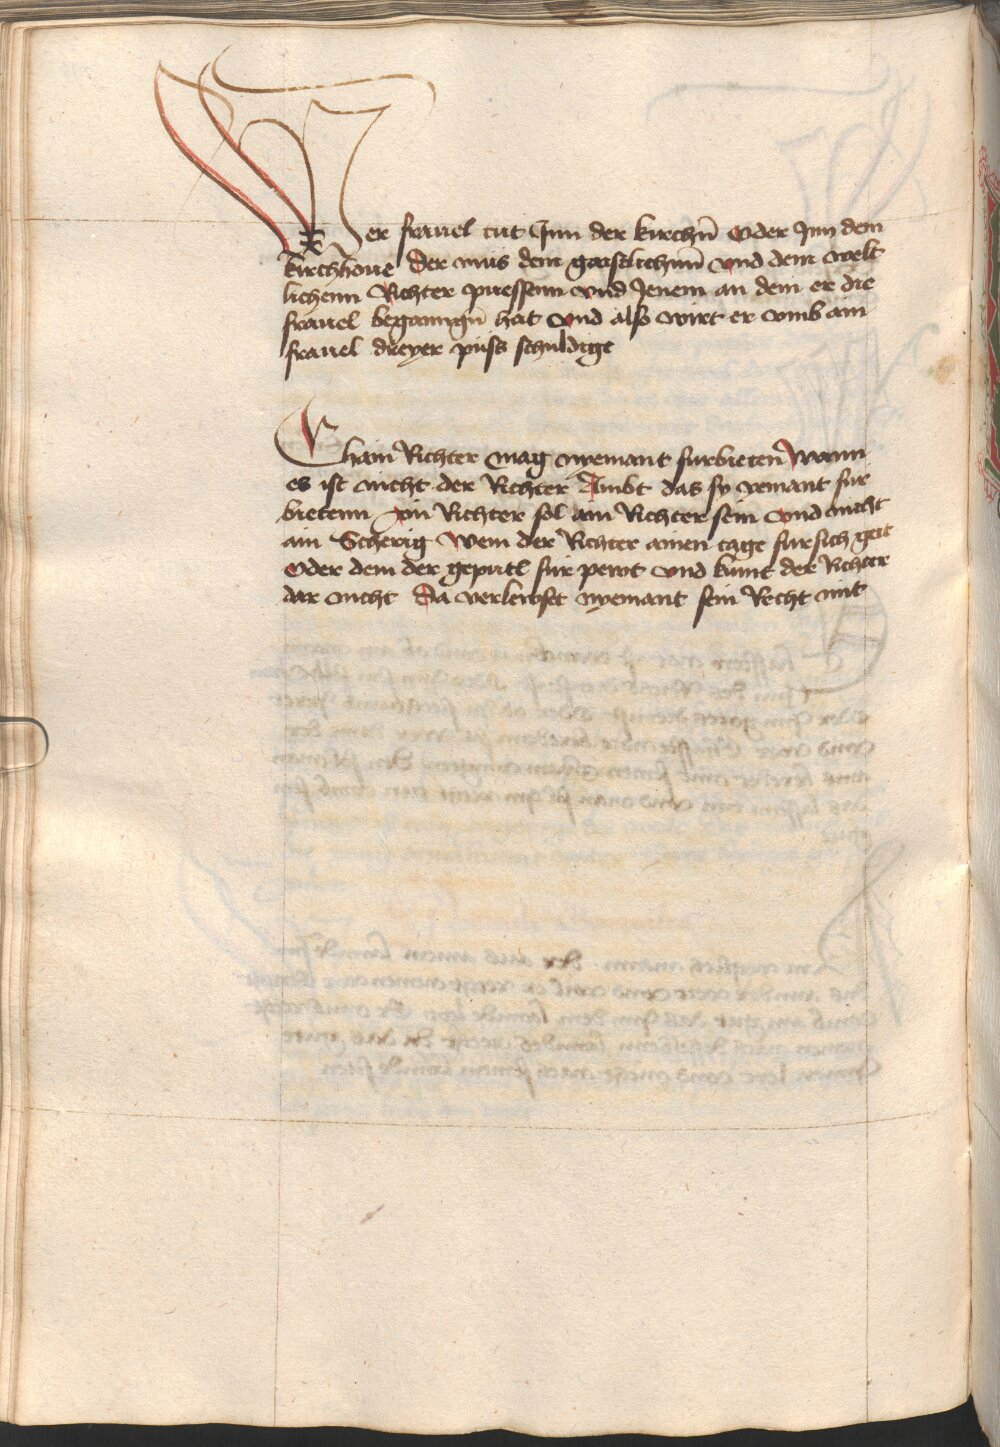 Wer frauel tut Jnn der kirchn̄ Oder Jnn dem
kirchhoue Der mus dem gaistlichnn̄ vnd dem welt
lichenn Richter puessenn vnd Jenem an dem er die
frauel beganngn̄ hat vnd also wirt er vmb ain
frauel dreyer puss schuldige
Chain Richter mag nyemant furbieten Wann
es ist nicht der Richter Ambt das sy yemant fur
bietenn Ain Richter sol ain Richter sein vnd nicht
ain Scherig Wem der Richter ainen tage fur sich geit
Oder dem der geputl fur pewt vnd kumt der Richter
dar nicht Da verlewset nyemant sein Recht mit